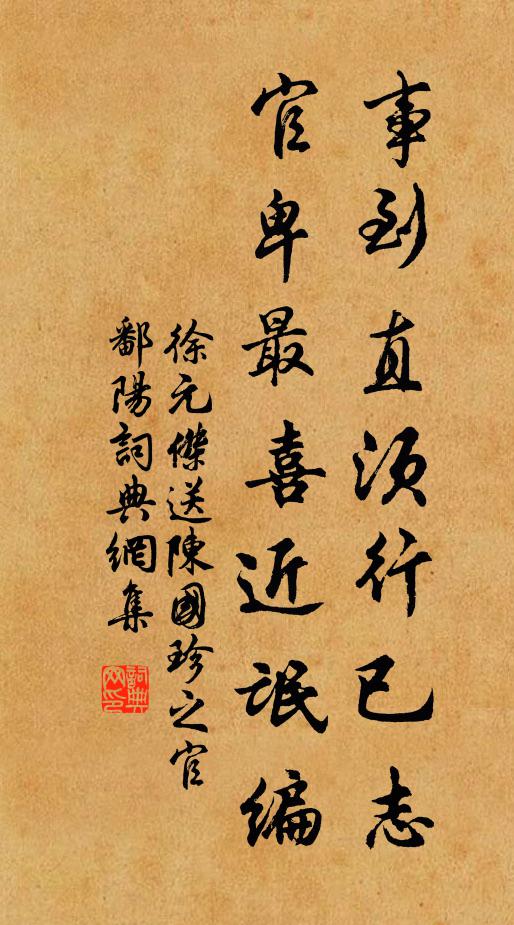 事到直須行已志
官卑最喜近氓編
徐元傑送陳國珍之官
鄱陽詞典網集
詞典网印